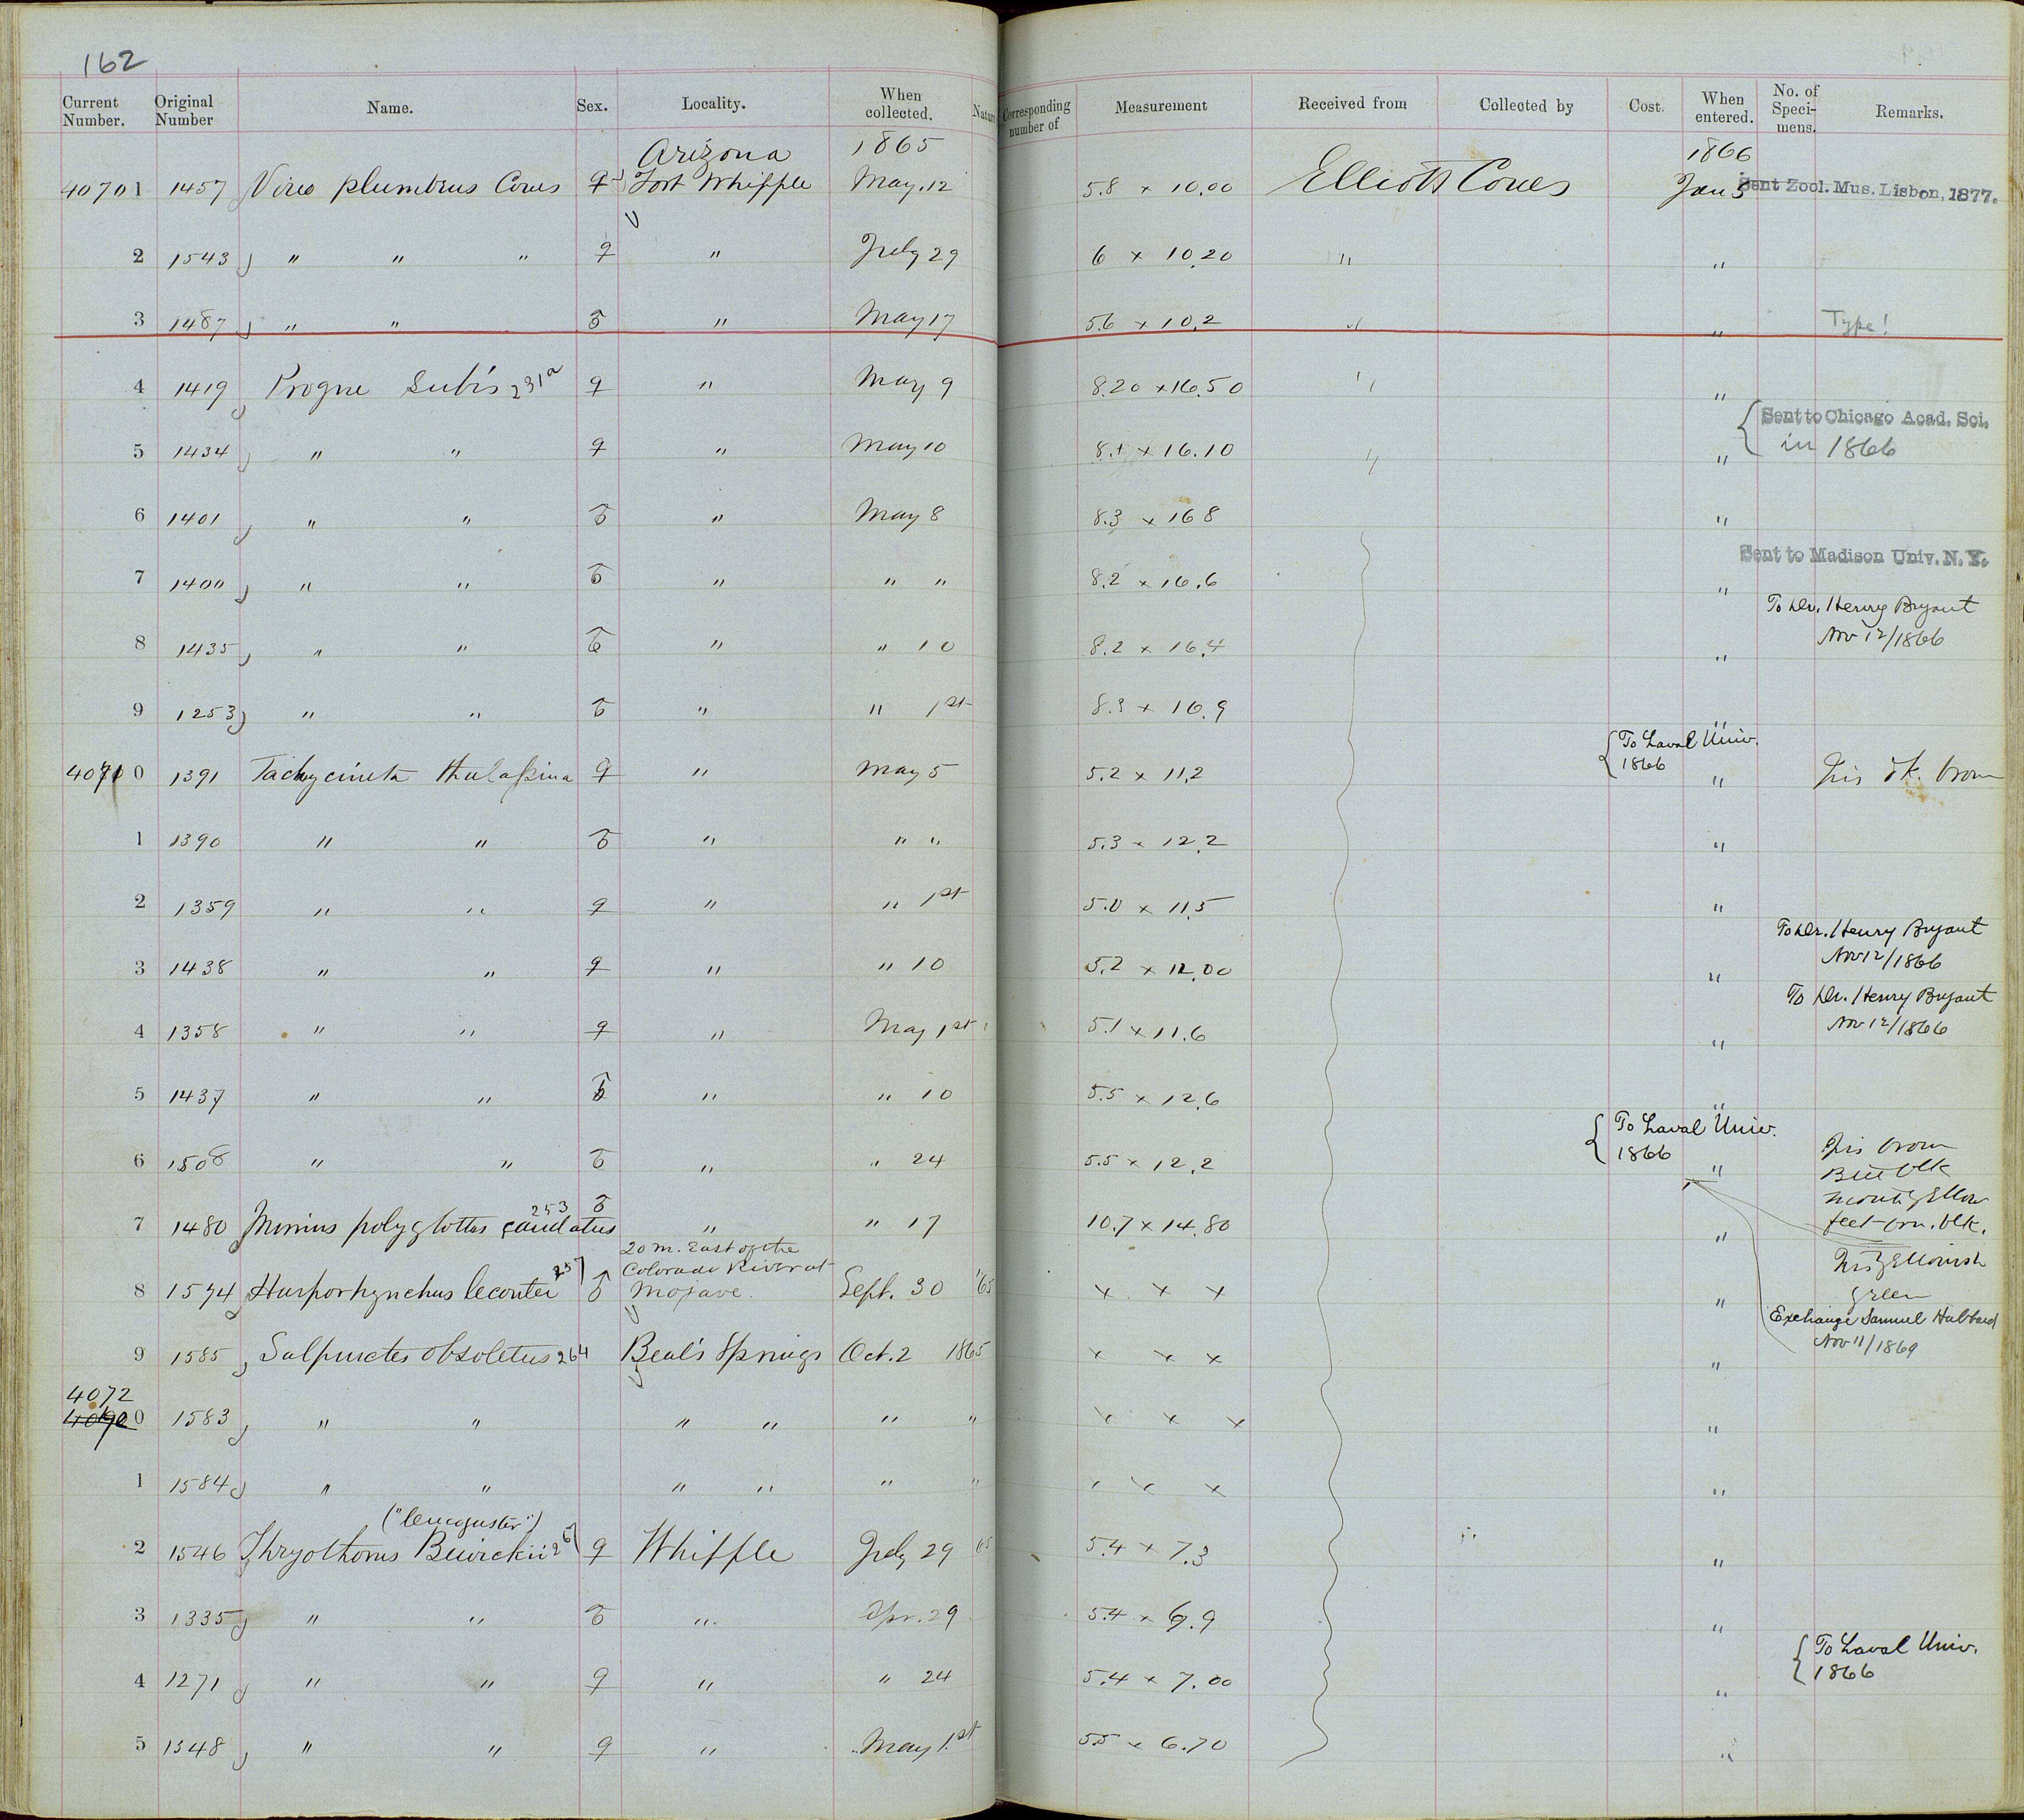 162
Current Number. Original Number Name. Sex. Locality. When collected. Nature Corresponding number of Measurement Received from Collected by Cost. When entered. No. of Specimens. Remarks.
Arizona 1865 1866
40701 1457 Vireo plumbeus Coues ♀ Fort Whipple May. 12 5.8 x 10.00 Elliott Coues Jan 5 Sent Zool. Mus. Lisbon, 1877.
2 1543 " " " ♀ " July 29 6 x 10.20 " "
3 1487 " " ♂ " May 17 5.6 x 10.2 " " Type!
4 1419 Progne subis 231a ♀ " May 9 8.20 x 16.50 " "
Sent to Chicago Acad. Sci.
5 1434 " " ♀ " May 10 8.1 x 16.10 " " in 1866
6 1401 " " ♂ " May 8 8.3 x 16 8 "
Sent to Madison Univ. N. Y.
7 1400 " " ♂ " " " 8.2 x 16.6 "
To Dr. Henry Bryant
Nov 12/1866
8 1435 " " ♂ " " 10 8.2 x 16.4 "
9 1253 " " ♂ " " 1st 8.3 x 16.9 "
To Laval Univ.
1866
40710 1391 Tachycineta thalassina ♀ " May 5 5.2 x 11.2 " Iris dk. brown
1 1390 " " ♂ " " " 5.3 x 12.2 "
2 1359 " " ♀ " " 1st 5.0 x 11.5 "
To Dr. Henry Bryant
Nov 12/1866
3 1438 " " ♀ " " 10 5.2 x 12.00 "
To Dr. Henry Bryant
Nov 12/1866
4 1358 " " ♀ " May 1st 5.1 x 11.6 "
5 1437 " " ♂ " " 10 5.5 x 12.6 "
To Laval Univ.
1866
6 1508 " " ♂ " " 24 5.5 x 12.2 " Iris brown
Bill blk
mouth yellow
253
7 1480 Mimus polyglottus caudatus ♂ " " 17 10.7 x 14.80 " feet brn. blk.
20 m. East of the
Colorado River at
Iris yellowish
green
8 1574 Harporhynchus lecontei 257 ♂ Mojave. Sept. 30 '65 x x x "
Exchange Samuel Hubbard
Nov 11/1869
9 1585 Salpinctes obsoletus 264 Beal's Springs Oct. 2 1865 x x x "
4072
40900 1583 " " " " " " x x x "
1 1584 " " " " " " x x x "
("leucogaster")
2 1546 Thryothorus Bewickii 267 ♀ Whipple July 29 65 5.4 x 7.3 "
3 1335 " " ♂ " Apr. 29 5.4 x 6.9 "
To Laval Univ.
1866
4 1271 " " ♀ " " 24 5.4 x 7.00 "
5 1348 " " ♀ " May 1st 5.5 x 6.70 "